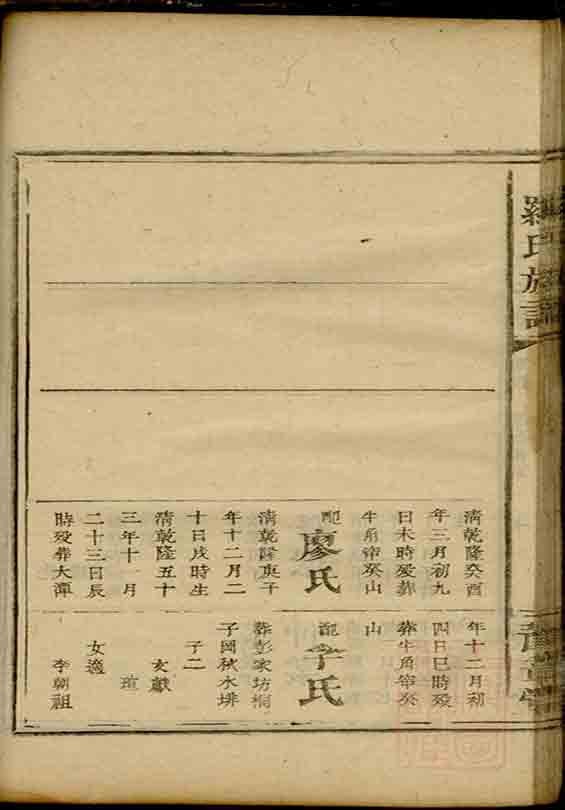 羅氏族譜
清乾隆癸酉
年三月初九
日未時歿葬
牛角帘癸山
配
廖氏
清乾隆庚子
年十二月二
十日戌時生
清乾隆五十
三年十月
二十三日辰
時歿葬大潭
年十二月初
四日巳時歿
葬牛角帘癸
山
配
李氏
葬彭家坊桐
子岡秋水塀
子二
文獻
瑄
女適
李朝祖